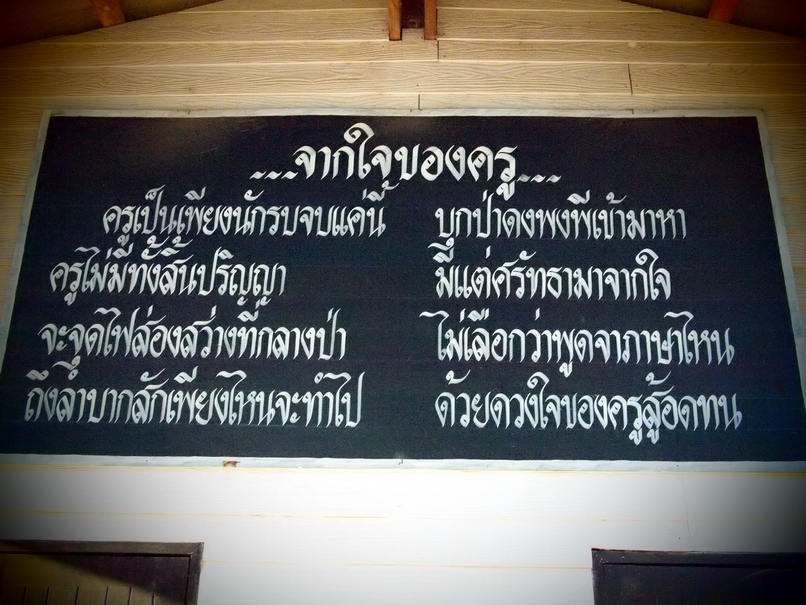 ...จากใจของครู...
ครูเป็นเพียงนักรบจบแค่นี้ บุกป่าดงพงพีเข้ามาหา
ครูไม่มีทั้งสิ้นปริญญา มีแต่ศรัทธามาจากใจ
จะจุดไฟส่องสว่างที่กลางป่า ไม่เลือกว่าพูดจาภาษาไหน
ถึงลำบากสักเพียงไหนจะทำไป ด้วยดวงใจของครูสู้อดทน